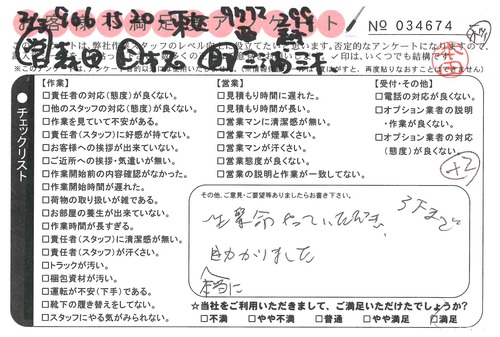 お客様満足アンケート
No 034674
このアンケートは、弊社作業スタッフのレベル向上に役立てたいと思います。否定的なアンケートになりますので、
✓印は、いくつでも結構です。
チェックリスト
【作業】
□責任者の対応(態度)が良くない。
□他のスタッフの対応(態度)が良くない。
□作業を見ていて不安がある。
□責任者(スタッフ)に好感が持てない。
□お客様への挨拶が出来ていない。
□ご近所への挨拶・気遣いが無い。
□作業開始前の内容確認がなかった。
□作業開始時間が遅れた。
□荷物の取り扱いが雑である。
□お部屋の養生が出来ていない。
□作業時間が長すぎる。
□責任者(スタッフ)に清潔感が無い。
□責任者(スタッフ)が汗くさい。
□トラックが汚い。
□梱包資材が汚い。
□運転が不安(下手)である。
□靴下の履き替えをしてない。
□スタッフにやる気がみられない。
【営業】
□見積もり時間に遅れた。
□見積もり時間が長い。
□営業マンに清潔感が無い。
□営業マンが煙草くさい。
□営業マンが汗くさい。
□営業態度が良くない。
□営業の説明と作業が一致してない。
【受付・その他】
□電話の対応が良くない。
□オプション業者の説明
・作業が良くない。
□オプション業者の対応
(態度)が良くない。
その他、ご意見・ご要望等ありましたらお書き下さい。
生懸命やっていただき、
3Fまで
助かりました
本当に
☆当社をご利用いただきまして、ご満足いただけたでしょうか?
□不満 □やや不満 □普通 □やや満足 □満足